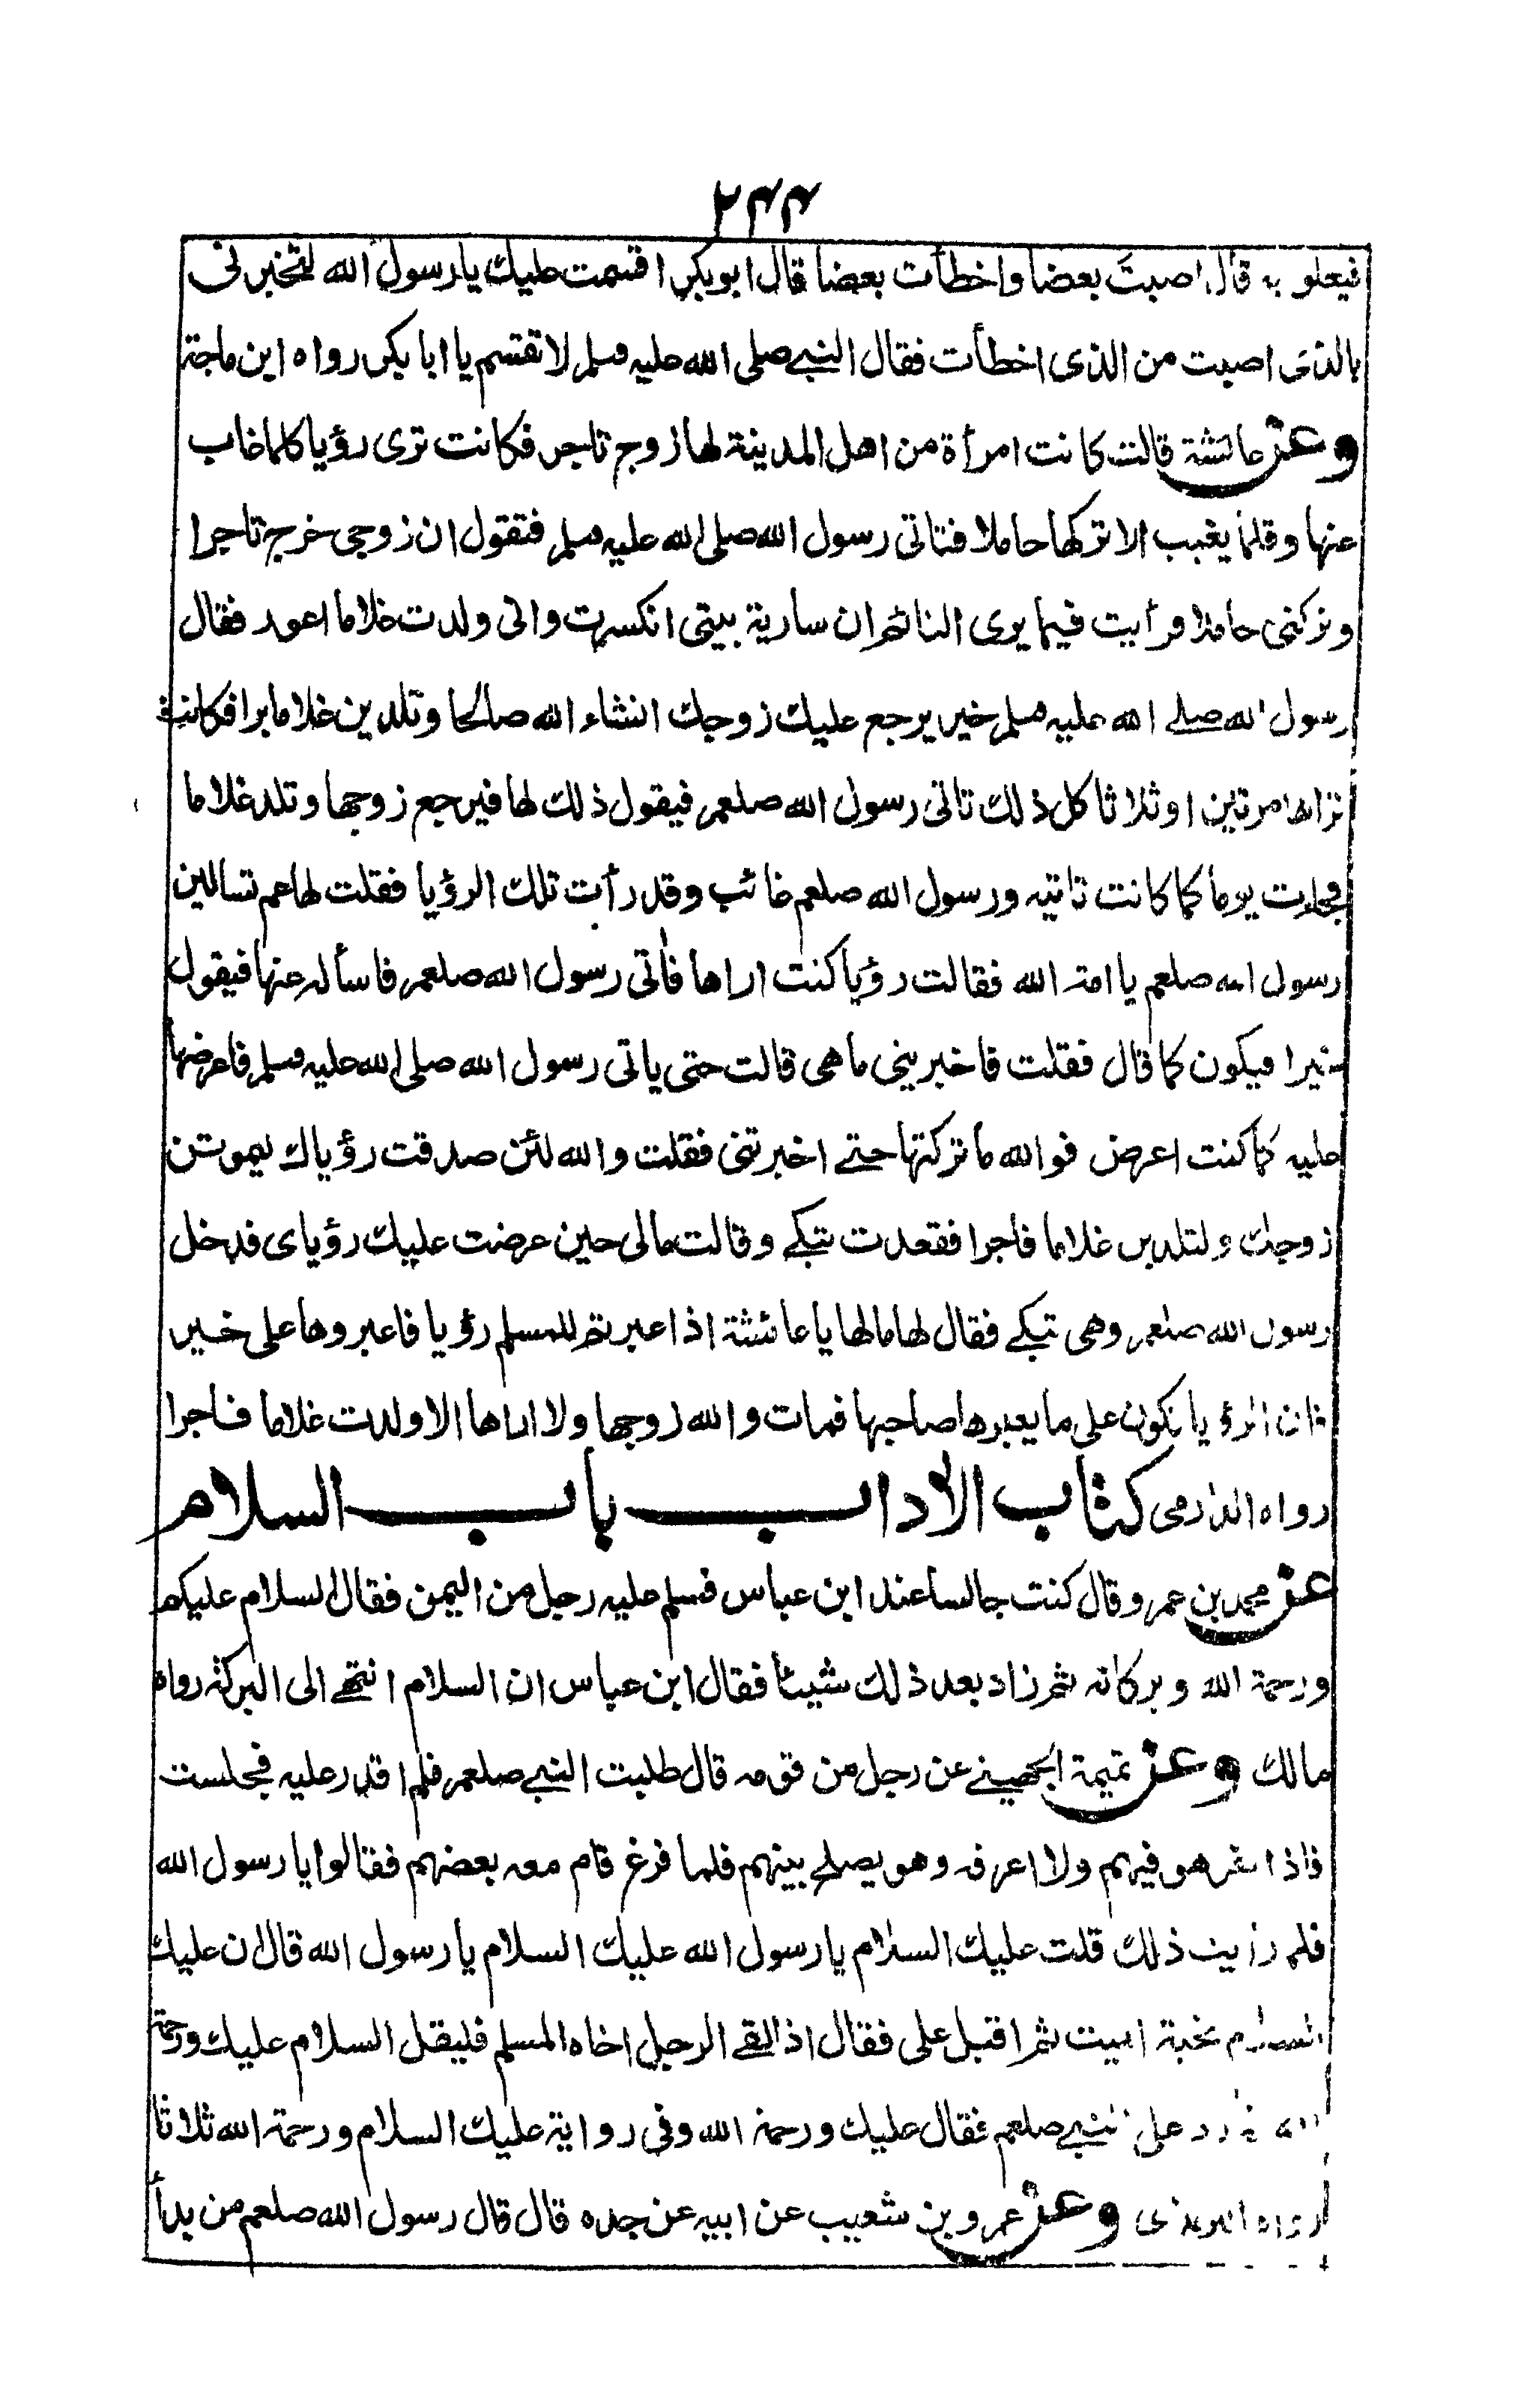 ۲۴۴
فيعلو به قال اصبت بعضا واخطأت بعضا قال ابوبكر اقسمت عليك يا رسول الله لتخبرنى
بالذى اصبت من الذى اخطأت فقال النبى صلى الله عليه وسلم لا تقسم يا ابا بكر رواه ابن ماجة
وعن عائشة قالت كانت امرأة من اهل المدينة لها زوج تاجر فكانت ترى رؤيا كلما غاب
عنها وقلما يغيب الا تركها حاملا فتاتى رسول الله صلى الله عليه وسلم فتقول ان زوجى خرج تاجرا
وتركنى حاملا فرأيت فيما يرى النائم ان سارية بيتى انكسرت وانى ولدت غلاما اعور فقال
رسول الله صلى الله عليه وسلم خير يرجع عليك زوجك انشاء الله صالحا وتلدين غلاما برا فكانت
تراها مرتين او ثلاثا كل ذلك تاتى رسول الله صلعم فيقول ذلك لها فيرجع زوجها وتلد غلاما
فجاءت يوما كما كانت تاتيه ورسول الله صلعم غائب وقد رأت تلك الرؤيا فقلت لها عم تسالين
رسول الله صلعم يا امة الله فقالت رؤيا كنت اراها فأتى رسول الله صلعم فاسأله عنها فيقول
خيرا فيكون كما قال فقلت فاخبرينى ما هى قالت حتى ياتى رسول الله صلى الله عليه وسلم فاعرضها
عليه كما كنت اعرض فوالله ما تركتها حتى اخبرتنى فقلت والله لئن صدقت رؤياك ليموتن
زوجك ولتلدين غلاما فاجرا فقعدت تبكى وقالت مالى حين عرضت عليك رؤياى فدخل
رسول الله صلعم وهى تبكى فقال لها مالها يا عائشة اذا عبرتم للمسلم رؤيا فاعبروها على خير
فان الرؤيا تكون على ما يعبرها صاحبها فمات والله زوجها ولا اراها الا ولدت غلاما فاجرا
رواه الدارمى كتاب الاداب باب السلام
عن محمد بن عمرو قال كنت جالسا عند ابن عباس فسلم عليه رجل من اليمن فقال السلام عليكم
ورحمة الله وبركاته ثم زاد بعد ذلك شيئا فقال ابن عباس ان السلام انتهى الى البركة رواه
مالك وعن تميمة الجهينى عن رجل من قومه قال طلبت النبى صلعم فلم اقدر عليه فجلست
فاذا نفر هو فيهم ولا اعرفه وهو يصلح بينهم فلما فرغ قام معه بعضهم فقالوا يا رسول الله
فلما رأيت ذلك قلت عليك السلام يا رسول الله عليك السلام يا رسول الله قال ان عليك
السلام تحية الميت ثم اقبل على فقال اذا لقى الرجل اخاه المسلم فليقل السلام عليك ورحمة
الله رد على النبى صلعم فقال عليك ورحمة الله وفى رواية عليك السلام ورحمة الله ثلاثا
رواه الترمذى وعن عمرو بن شعيب عن ابيه عن جده قال قال رسول الله صلعم من بدأ